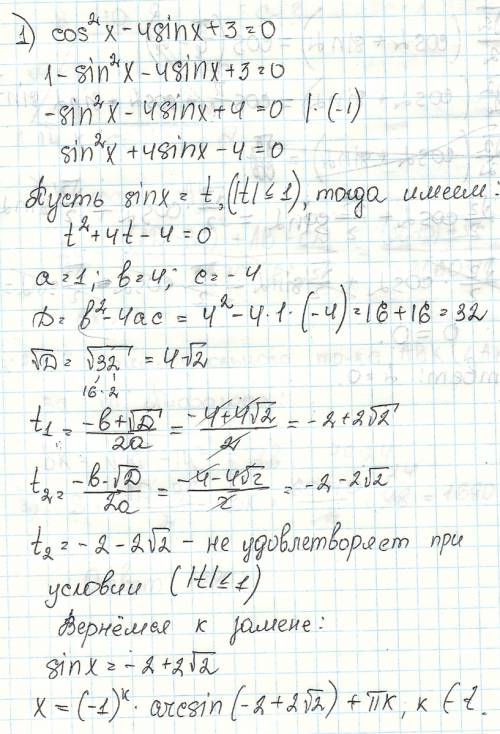 1) cos²x - 4sinx + 3 = 0
1 - sin²x - 4sinx + 3 = 0
-sin²x - 4sinx + 4 = 0 |·(-1)
sin²x + 4sinx - 4 = 0
Пусть sinx = t, (|t| ≤ 1), тогда имеем:
t² + 4t - 4 = 0
a = 1; b = 4; c = -4
D = b² - 4ac = 4² - 4·1·(-4) = 16 + 16 = 32
√D = √32 = 4√2
16·2
t₁ = (-b+√D)/2a = (-4+4√2)/2 = -2+2√2
t₂ = (-b-√D)/2a = (-4-4√2)/2 = -2-2√2
t₂ = -2-2√2 - не удовлетворяет при
условии (|t| ≤ 1)
Вернёмся к замене:
sinx = -2+2√2
x = (-1)ᵏ · arcsin(-2+2√2) + πk, k ∈ Z.